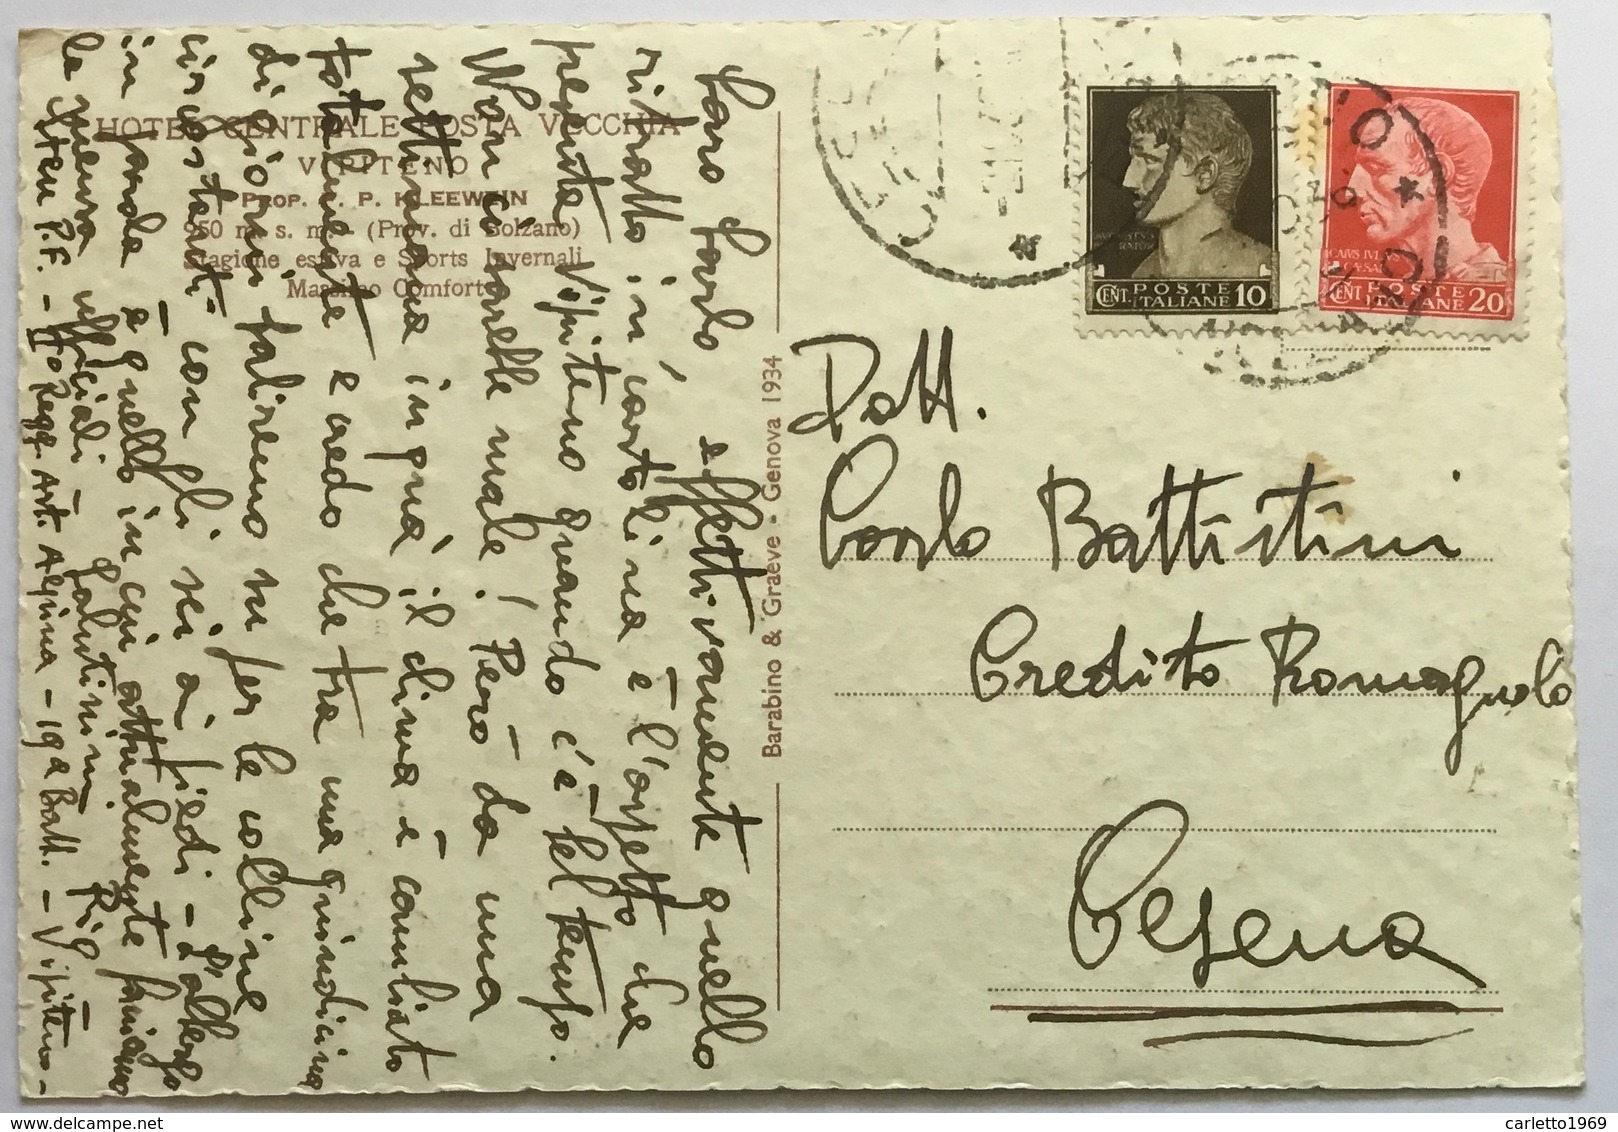 Caro Carlo, effettivamente quello
ritratto in cartolina è l'aspetto che
presenta Vipiteno quando c'è bel tempo.
Non ci sarebbe male! Però da una
settimana in quà il clima è cambiato
totalmente e credo che tra una quindicina
di giorni saliremo su per le colline
circostanti con gli sci ai piedi - L'albergo
in è quello in cui attualmente
la mensa ufficiali - salutissimi
S.Ten P.F. - IIo Regg. Art. Alpina - 19a Batt. - Vipiteno -
HOTEL CENTRALE POSTA VECCHIA
VIPITENO
PROP. P. KLEEWEIN
950 m. s. m. - (Prov. di Bolzano)
Stagione estiva e Sports Invernali
Massimo Comfort
Barabino & Graeve - Genova 1934
CENT. POSTE ITALIANE 10
CAIVS IVLIVS CAESAR
CENT POSTE ITALIANE 20
Dott.
Carlo Battistini
Credito Romagnolo
Cesena
carletto1969